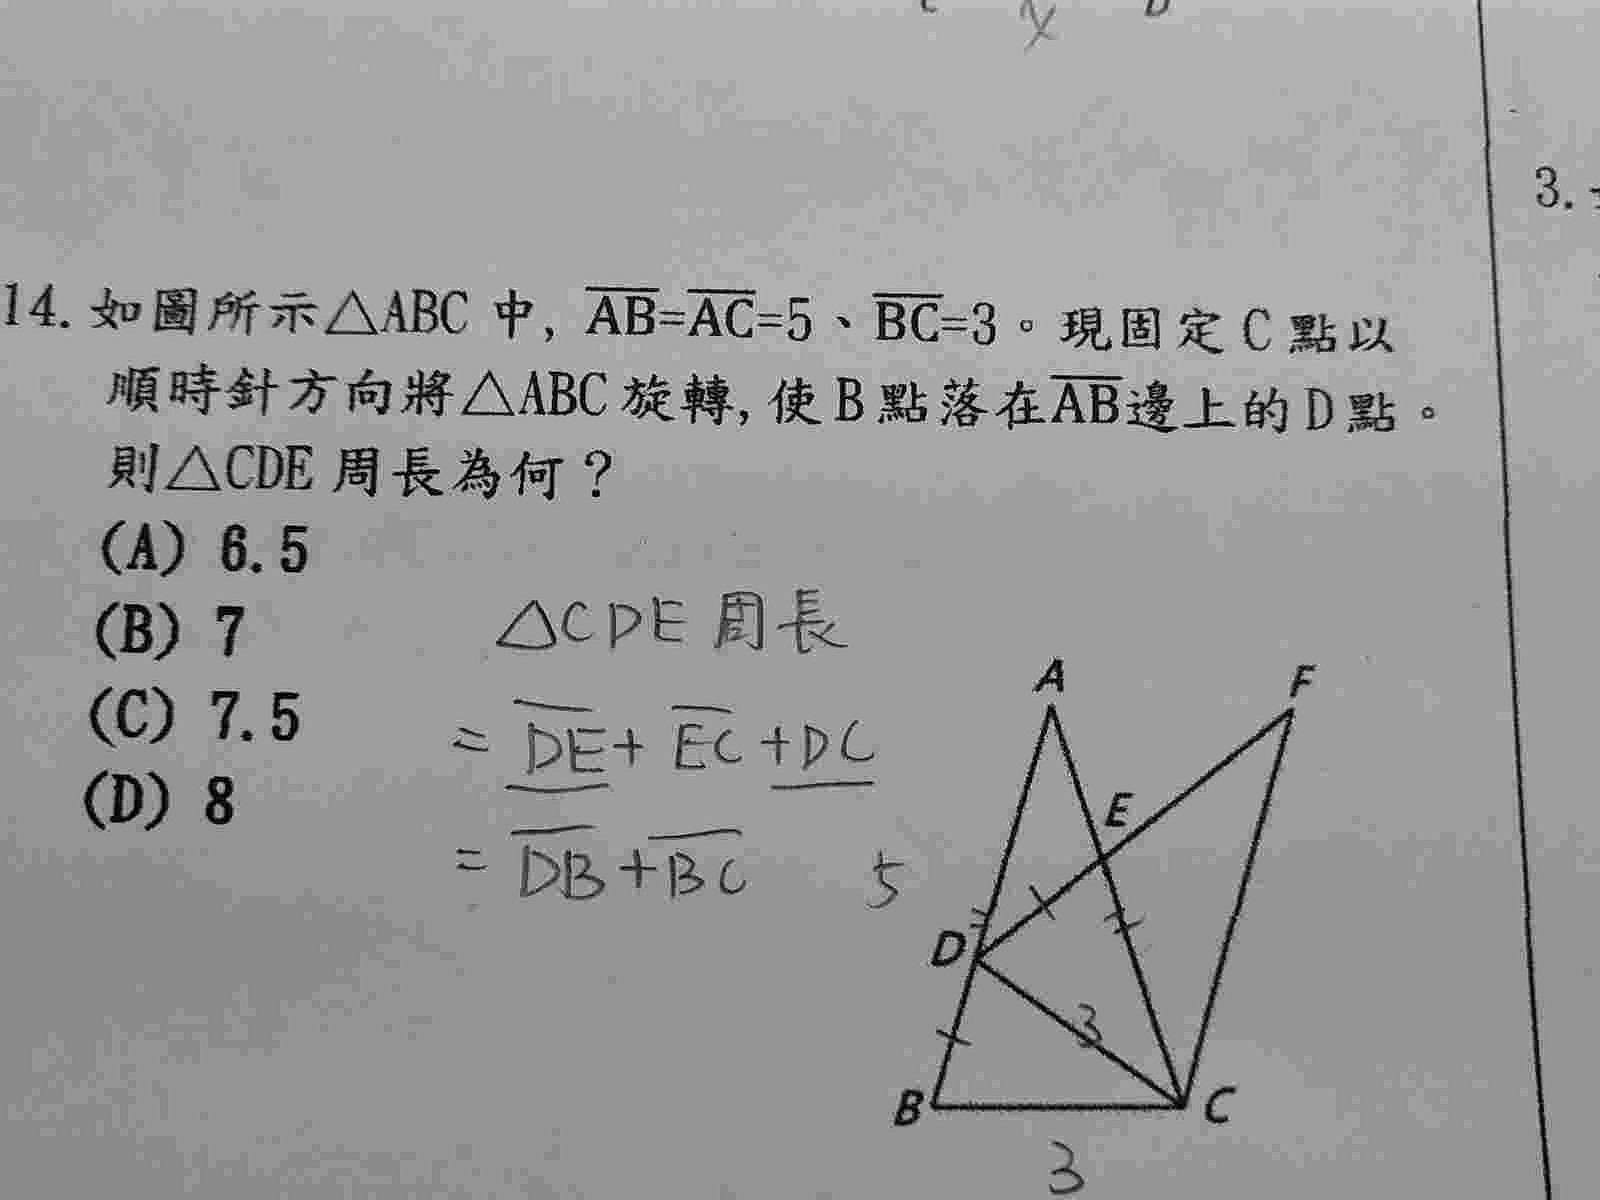 14. 如圖所示△ABC 中, AB=AC=5、BC=3。現固定 C 點以
順時針方向將△ABC 旋轉, 使 B 點落在AB邊上的 D 點。
則△CDE 周長為何?
(A) 6.5
(B) 7
(C) 7.5
(D) 8
△CDE 周長
= DE + EC + DC
= DB + BC
5
A
F
E
D
3
B
C
3
3.